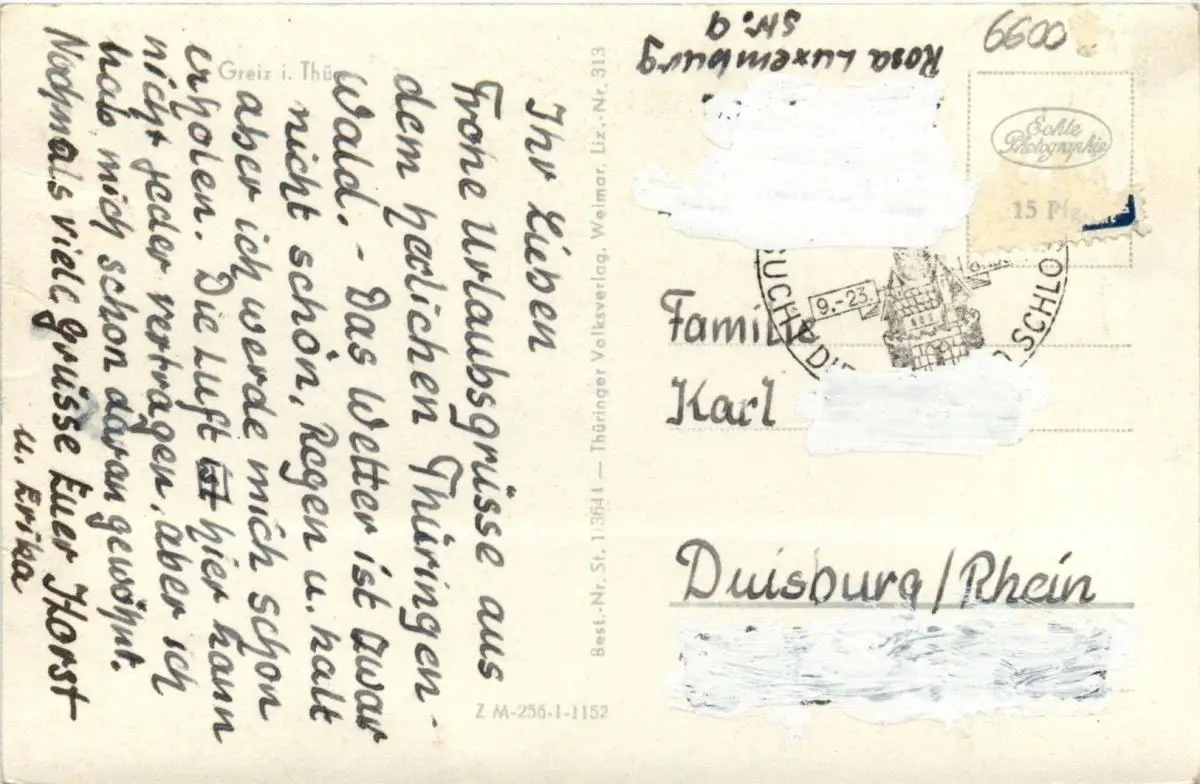 Ihr Lieben
Frohe Urlaubsgrüsse aus
dem herlichen Thüringen-
Wald. - Das Wetter ist zwar
nicht schön, Regen u. kalt
aber ich werde mich schon
erholen. Die Luft ist hier kann
nicht jeder vertragen, aber ich
hab mich schon daran gewöhnt.
Nochmals viele Grüsse Euer Horst
u. Erika
Greiz i. Thür
Best.-Nr. St. 1/3644 — Thüringer Volksverlag, Weimar, Liz.-Nr. 313
Z M-256-1-1152
Rosa Luxemburg
Str. 9
6600
Echte
Photographie
15 Pfg
9.-23.
SUCHT DIE
SCHLO
Familie
Karl
Duisburg/Rhein